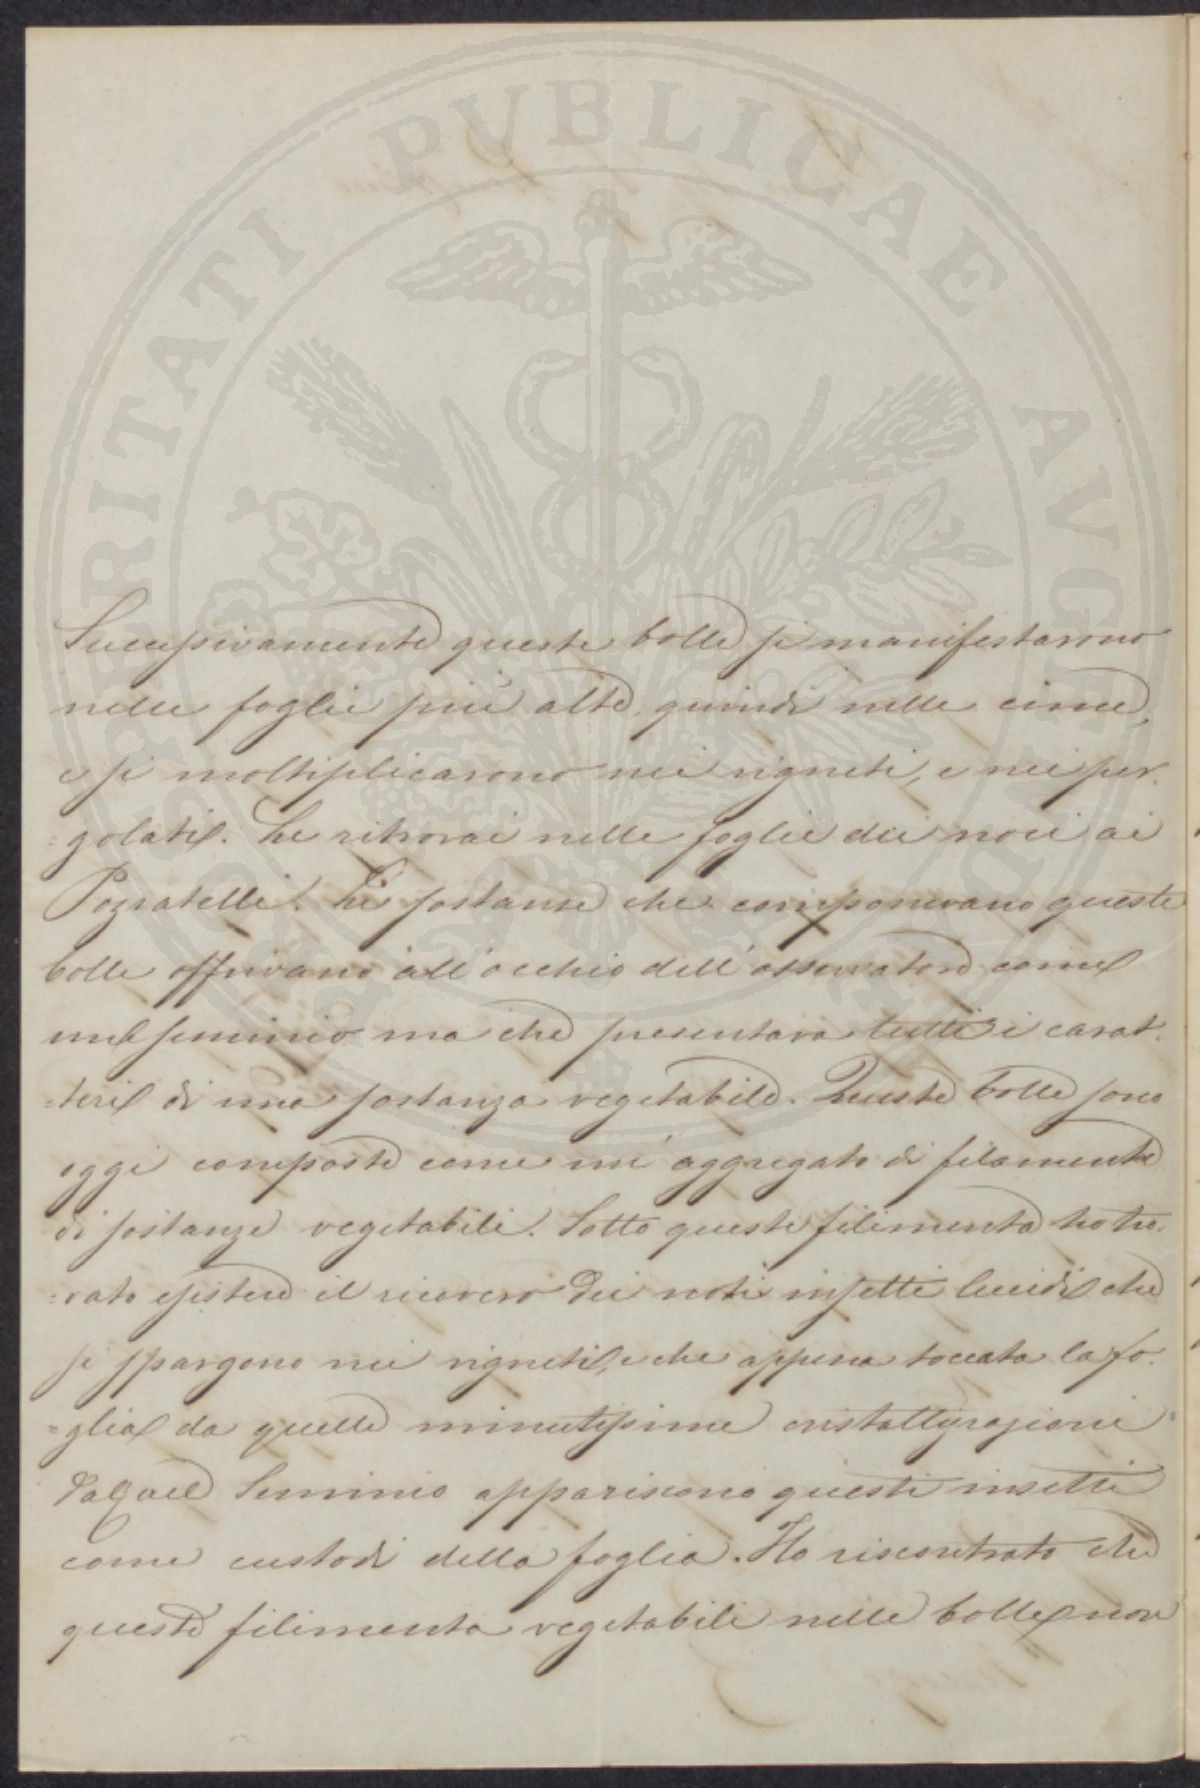 PROSPERITATI PVBLICAE AVGENDAE
Successivamente queste bolle si manifestarono
nelle foglie più alte, quindi nelle cime,
e si moltiplicarono nei vigneti, e nei per-
=golati. Le ritrovai nelle foglie dei noci ai
Pozzatelli. Le sostanze che componevano queste
bolle offrivano all'occhio dell'osservatore come
un seminio ma che presentava tutti i carat-
=teri di una sostanza vegetabile. Queste bolle sono
oggi composte come un' aggregato di filamenta
di sostanze vegetabili. Sotto queste filimenta ho tro-
=vato esistere il ricovero dei noti insetti lucidi che
si spargono nei vigneti, e che appena toccata la fo-
=glia da quelle minutissime cristallizzazioni
da quel Seminio appariscono questi insetti
come custodi della foglia. Ho riscontrato che
queste filimenta vegetabili nelle bolle non